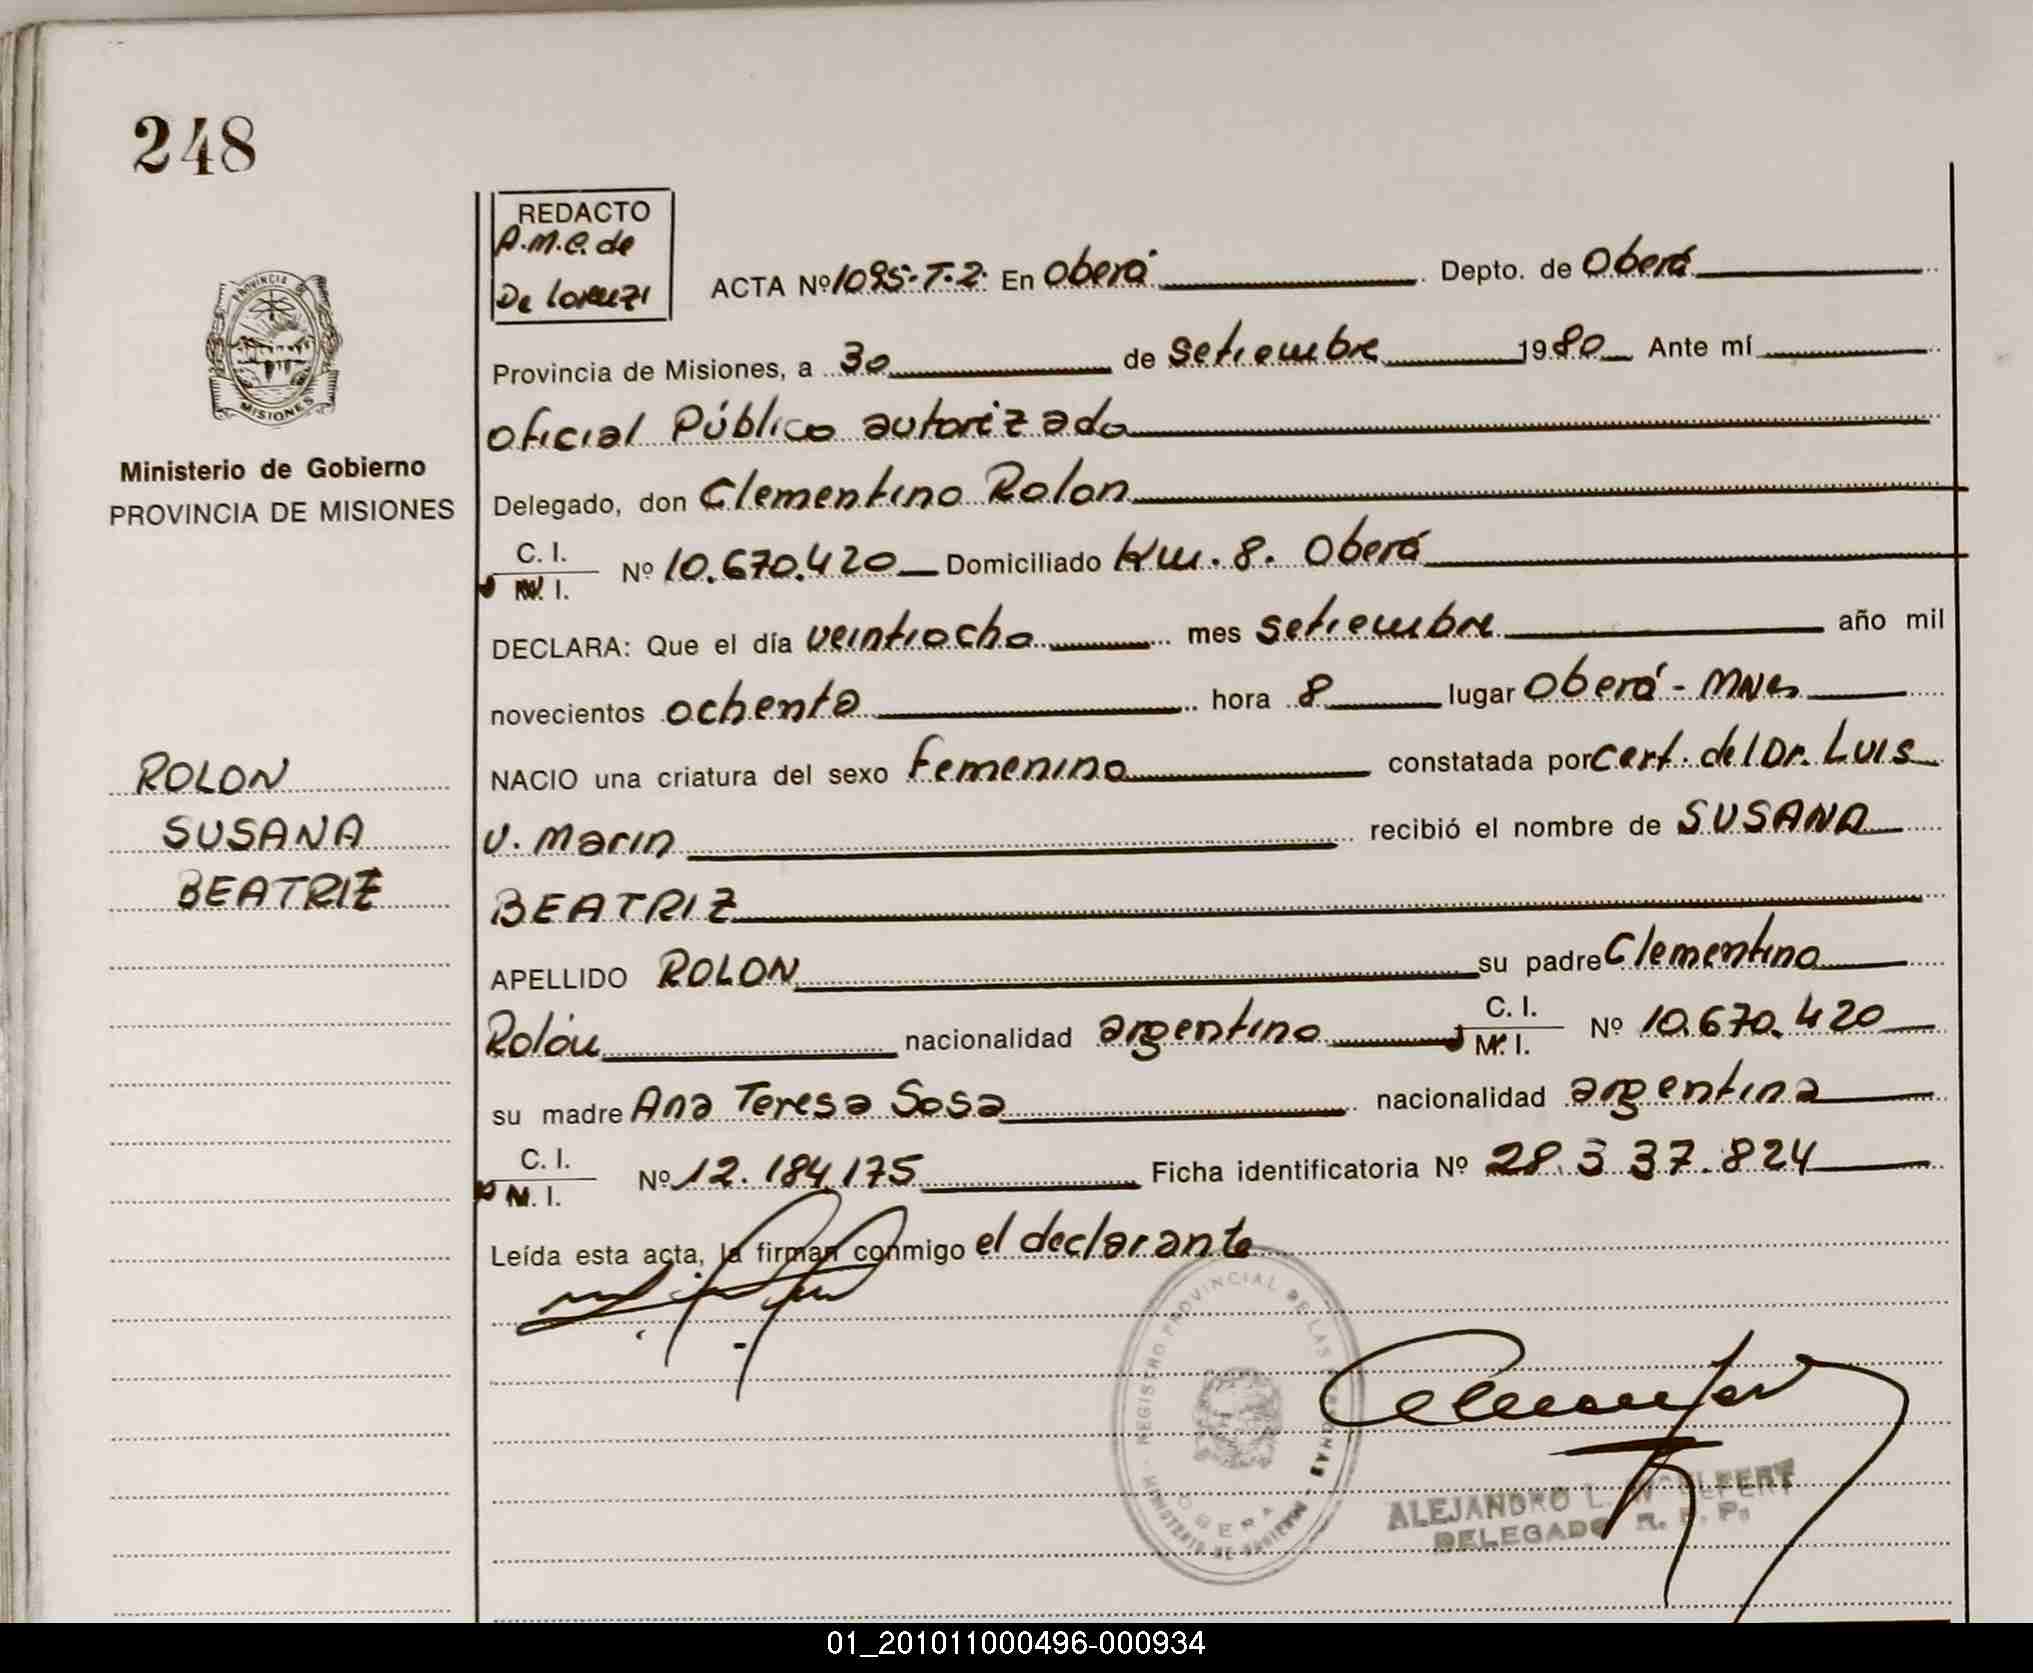 248
REDACTO
A.M.C. de
De Lorenzi
ACTA Nº 1095-T-2. En Oberá Depto. de Oberá
PROVINCIA DE
MISIONES
Provincia de Misiones, a 30 de setiembre 1980 Ante mí
Oficial Público autorizado
Ministerio de Gobierno
PROVINCIA DE MISIONES
Delegado, don Clementino Rolon
C. I.
M. I. Nº 10.670.420 Domiciliado Km. 8. Oberá
DECLARA: Que el día veintiocho mes setiembre año mil
novecientos ochenta hora 8 lugar Oberá - Mnes
NACIO una criatura del sexo femenino constatada por cert. del Dr. Luis
V. Marin recibió el nombre de SUSANA
BEATRIZ
ROLON
SUSANA
BEATRIZ
APELLIDO ROLON su padre Clementino
Rolón nacionalidad argentino C. I.
M. I. Nº 10.670.420
su madre Ana Teresa Sosa nacionalidad argentina
C. I.
M. I. Nº 12.184.175 Ficha identificatoria Nº 28.337.824
Leída esta acta, la firman conmigo el declarante
REGISTRO PROVINCIAL DE LAS PERSONAS - MINISTERIO DE GOBIERNO -
OBERA
ALEJANDRO L.
DELEGADO R. P. P.
01_201011000496-000934